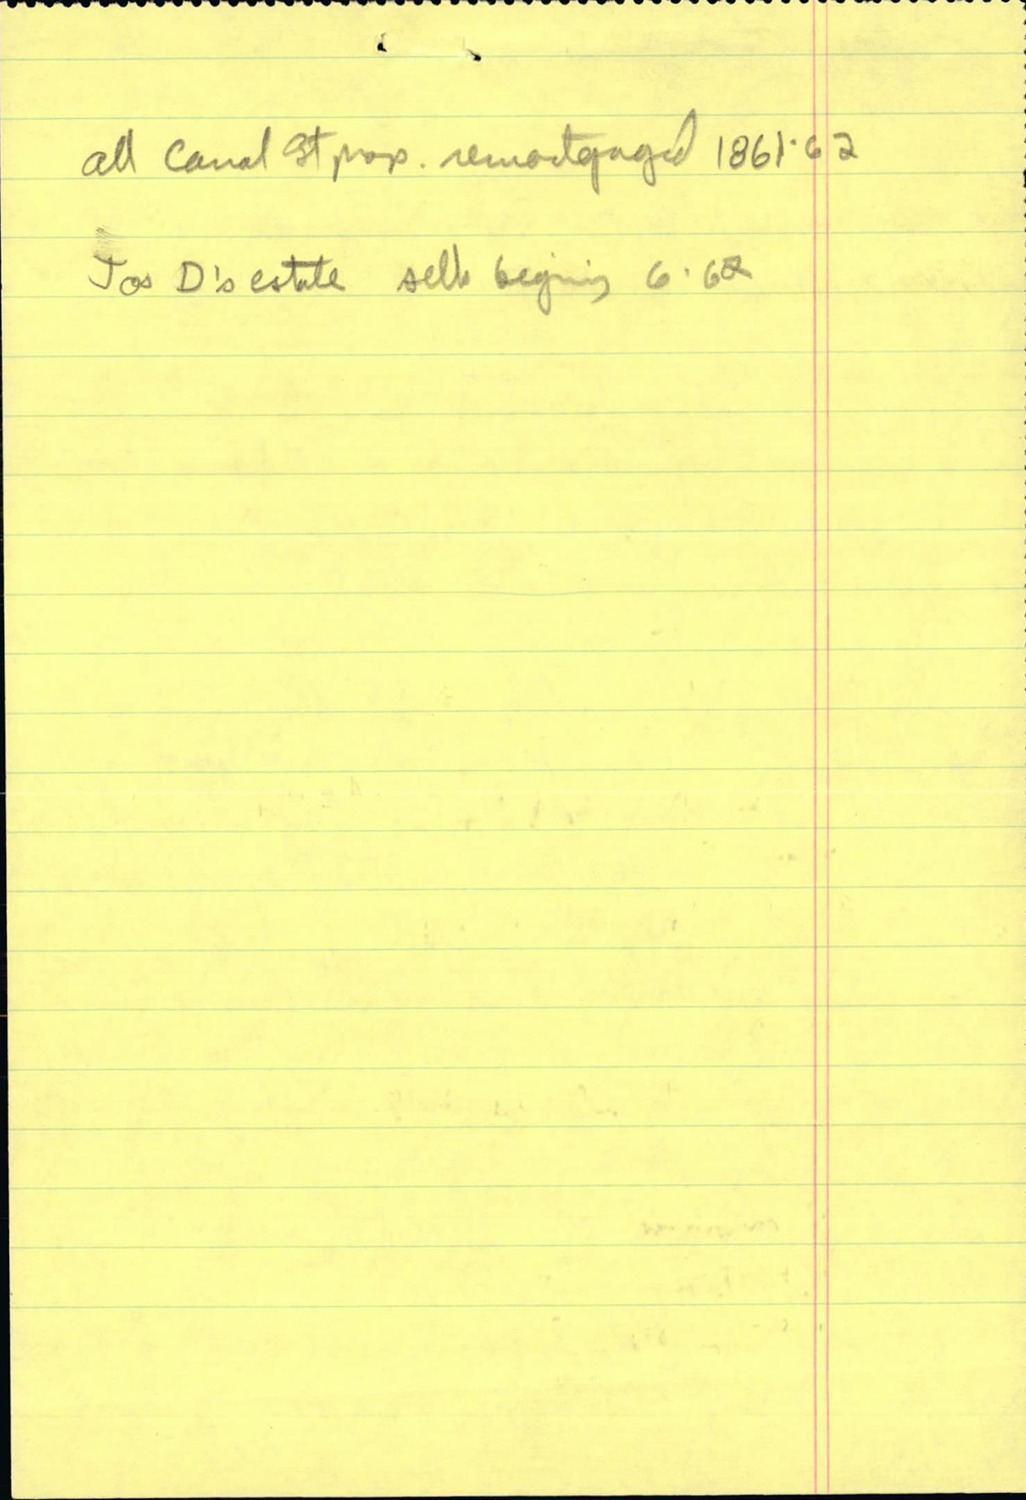 all Canal St prop. remortgaged 1861-62
Jos D's estate sells begining 6.62